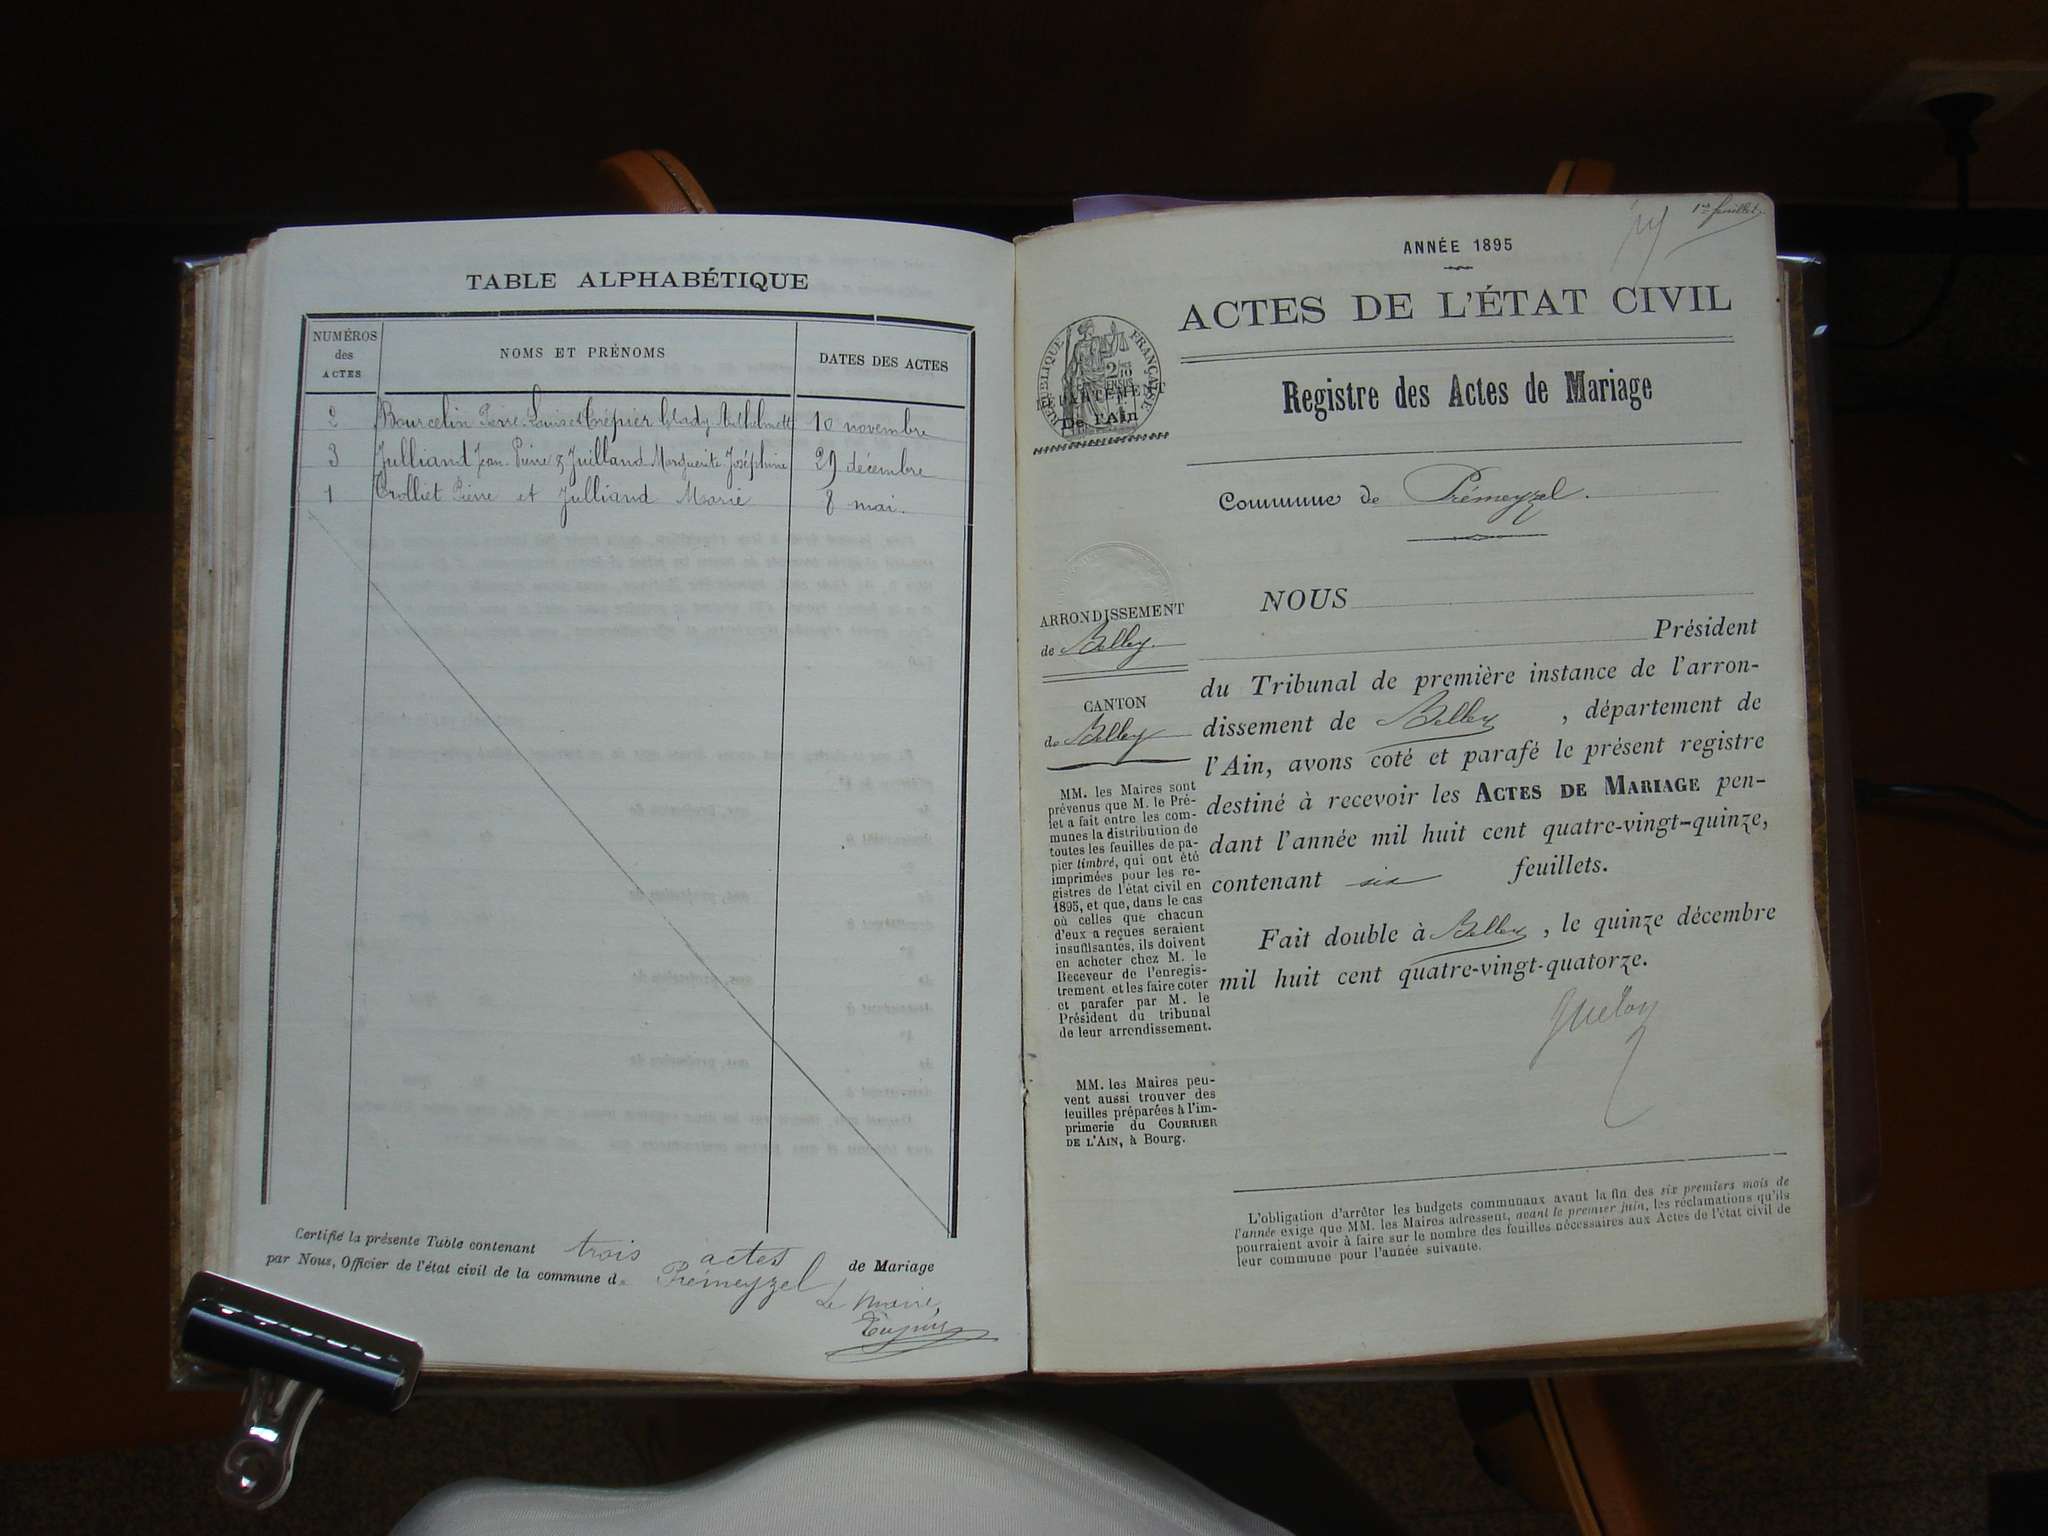 TABLE ALPHABÉTIQUE
NUMÉROS
des
ACTES
NOMS ET PRÉNOMS
DATES DES ACTES
2 Bourcelin Pierre Louis et Crépier Clady 10 novembre
3 Julliand Jean Pierre & Juilland Marguerite Joséphine 29 décembre
1 Trolliet Pierre et Julliand Marie 8 mai.
Certifié la présente Table contenant trois actes de Mariage
par Nous, Officier de l'état civil de la commune d Prémeyzel
Le Maire,
1er feuillet.
ANNÉE 1895
ACTES DE L'ÉTAT CIVIL
RÉPUBLIQUE FRANÇAISE
DÉPARTEMENT
De l'Ain
Registre des Actes de Mariage
Commune de Prémeyzel.
ARRONDISSEMENT
de Belley.
CANTON
de Belley
MM. les Maires sont
prévenus que M. le Pré-
fet a fait entre les com-
munes la distribution de
toutes les feuilles de pa-
pier timbré, qui ont été
imprimées pour les re-
gistres de l'état civil en
1895, et que, dans le cas
où celles que chacun
d'eux a reçues seraient
insuffisantes, ils doivent
en acheter chez M. le
Receveur de l'enregis-
trement et les faire coter
et parafer par M. le
Président du tribunal
de leur arrondissement.
MM. les Maires peu-
vent aussi trouver des
feuilles préparées à l'im-
primerie du COURRIER
DE L'AIN, à Bourg.
NOUS
Président
du Tribunal de première instance de l'arron-
dissement de Belley, département de
l'Ain, avons coté et parafé le présent registre
destiné à recevoir les ACTES DE MARIAGE pen-
dant l'année mil huit cent quatre-vingt-quinze,
contenant six feuillets.
Fait double à Belley, le quinze décembre
mil huit cent quatre-vingt-quatorze.
L'obligation d'arrêter les budgets communaux avant la fin des six premiers mois de
l'année exige que MM. les Maires adressent, avant le premier juin, les réclamations qu'ils
pourraient avoir à faire sur le nombre des feuilles nécessaires aux Actes de l'état civil de
leur commune pour l'année suivante.